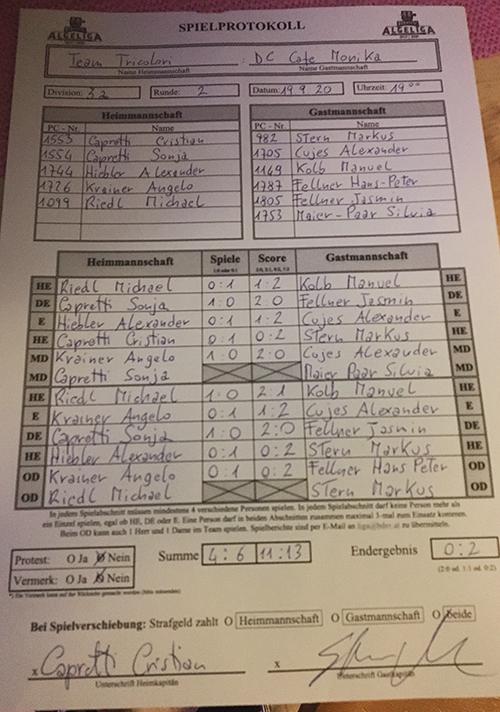 ALGELIGA SPIELPROTOKOLL ALGELIGA
Team Tricolori : DC Cafe Monika
Name Heimmannschaft Name Gastmannschaft
Division: 3a Runde: 2 Datum: 19 9. 20 Uhrzeit: 19 00
Heimmannschaft Gastmannschaft
PC - Nr. Name PC - Nr. Name
1553 Capretti Cristian 982 Stern Markus
1554 Capretti Sonja 1705 Cujes Alexander
1744 Hiebler Alexander 1149 Kolb Manuel
1726 Krainer Angelo 1787 Fellner Hans-Peter
1099 Riedl Michael 1805 Fellner Jasmin
1753 Maier-Paar Silvia
Heimmannschaft Spiele Score Gastmannschaft
HE Riedl Michael 0:1 1:2 Kolb Manuel HE
DE Capretti Sonja 1:0 2:0 Fellner Jasmin DE
E Hiebler Alexander 0:1 1:2 Cujes Alexander E
HE Capretti Cristian 0:1 0:2 Stern Markus HE
MD Krainer Angelo 1:0 2:0 Cujes Alexander MD
MD Capretti Sonja Maier Paar Silvia MD
HE Riedl Michael 1:0 2:1 Kolb Manuel HE
E Krainer Angelo 0:1 1:2 Cujes Alexander E
DE Capretti Sonja 1:0 2:0 Fellner Jasmin DE
HE Hiebler Alexander 0:1 0:2 Stern Markus HE
OD Krainer Angelo 0:1 0:2 Fellner Hans Peter OD
OD Riedl Michael Stern Markus OD
In jedem Spielabschnitt müssen mindestens 4 verschiedene Personen spielen. In jedem Spielabschnitt darf keine Person mehr als
ein Einzel spielen, egal ob HE, DE oder E. Eine Person darf in beiden Abschnitten zusammen maximal 3 mal zum Einsatz kommen.
Beim OD kann auch 1 Herr und 1 Dame im Team spielen. Spielberichte sind per E-Mail an zu übermitteln.
Protest: O Ja O Nein Summe 4:6 11:13 Endergebnis 0:2
Vermerk: O Ja O Nein (2:0 od. 1:1 od. 0:2)
*) Ein Vermerk kann auf der Rückseite gemacht werden (bitte umwenden)
Bei Spielverschiebung: Strafgeld zahlt O Heimmannschaft O Gastmannschaft O Beide
x Capretti Cristian x
Unterschrift Heimkapitän Unterschrift Gastkapitän